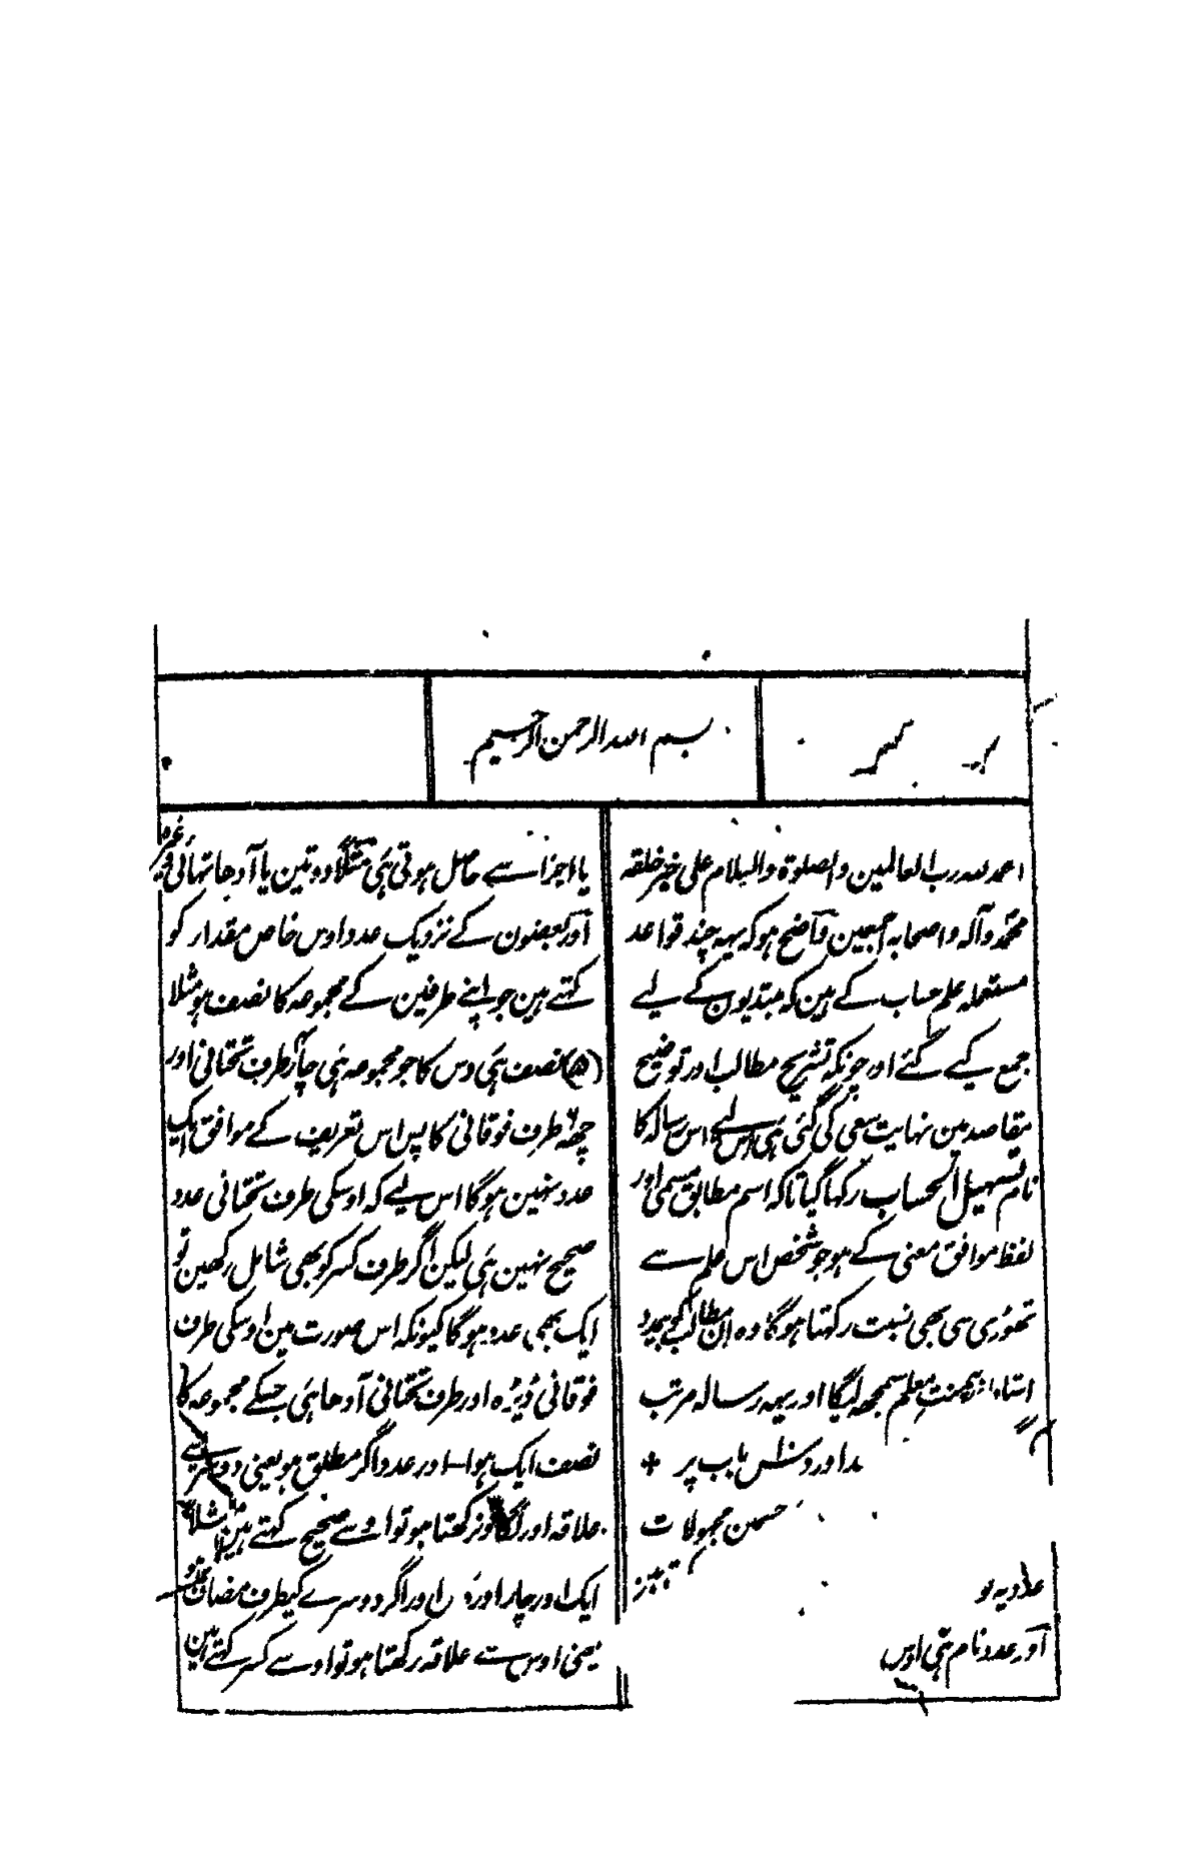 بسم اللہ الرحمن الرحیم
الحمد للہ رب العالمین والصلوۃ والسلام علی خیر خلقہ
محمد وآلہ واصحابہ اجمعین واضح ہو کہ یہہ چند قواعد
مستعملہ علم حساب کے ہین کہ مبتدیون کے لیے
جمع کیے گئے اور چونکہ تشریح مطالب اور توضیح
مقاصد مین نہایت سعی کی گئی ہی اس لیے اس رسالہ کا
نام تسہیل الحساب رکہا گیا تاکہ اسم مطابق مسمی اور
لفظ موافق معنی کے ہو جو شخص اس علم سے
تھوڑی سی بھی نسبت رکہتا ہوگا وہ ان مطالب کو بمدد
معلم سمجہ لیگا اور یہہ رسالہ مرتب
اور دس باب پر +
مجہولات
اور عدد نام ہی اوس
یا اجزا سے حاصل ہوتی ہی مثلا دو تین یا آدھا تہائی وغیرہ
اور بعضون کے نزدیک عدد اوس خاص مقدار کو
کہتے ہین جو اپنے طرفین کے مجموعہ کا نصف ہو مثلا
(۵) نصف ہی دس کا جو مجموعہ ہی چار طرف تحتانی اور
چھہ طرف فوقانی کا پس اس تعریف کے موافق ایک
عدد نہین ہوگا اس لیے کہ اوسکی طرف تحتانی عدد
صحیح نہین ہی لیکن اگر طرف کسر کو بھی شامل رکھین تو
ایک بھی عدد ہوگا کیونکہ اس صورت مین اوسکی طرف
فوقانی ڈیڑہ اور طرف تحتانی آدھا ہی جسکے مجموعہ کا
نصف ایک ہوا- اور عدد اگر مطلق ہو یعنی دوسرے سے
علاقہ اور لگاؤ نرکھتا ہو تو اوسے صحیح کہتے ہین مثلا
ایک اور چار اور اور اگر دوسرے کیطرف مضاف ہو
یعنی اوس سے علاقہ رکھتا ہو تو اوسے کسر کہتے ہین